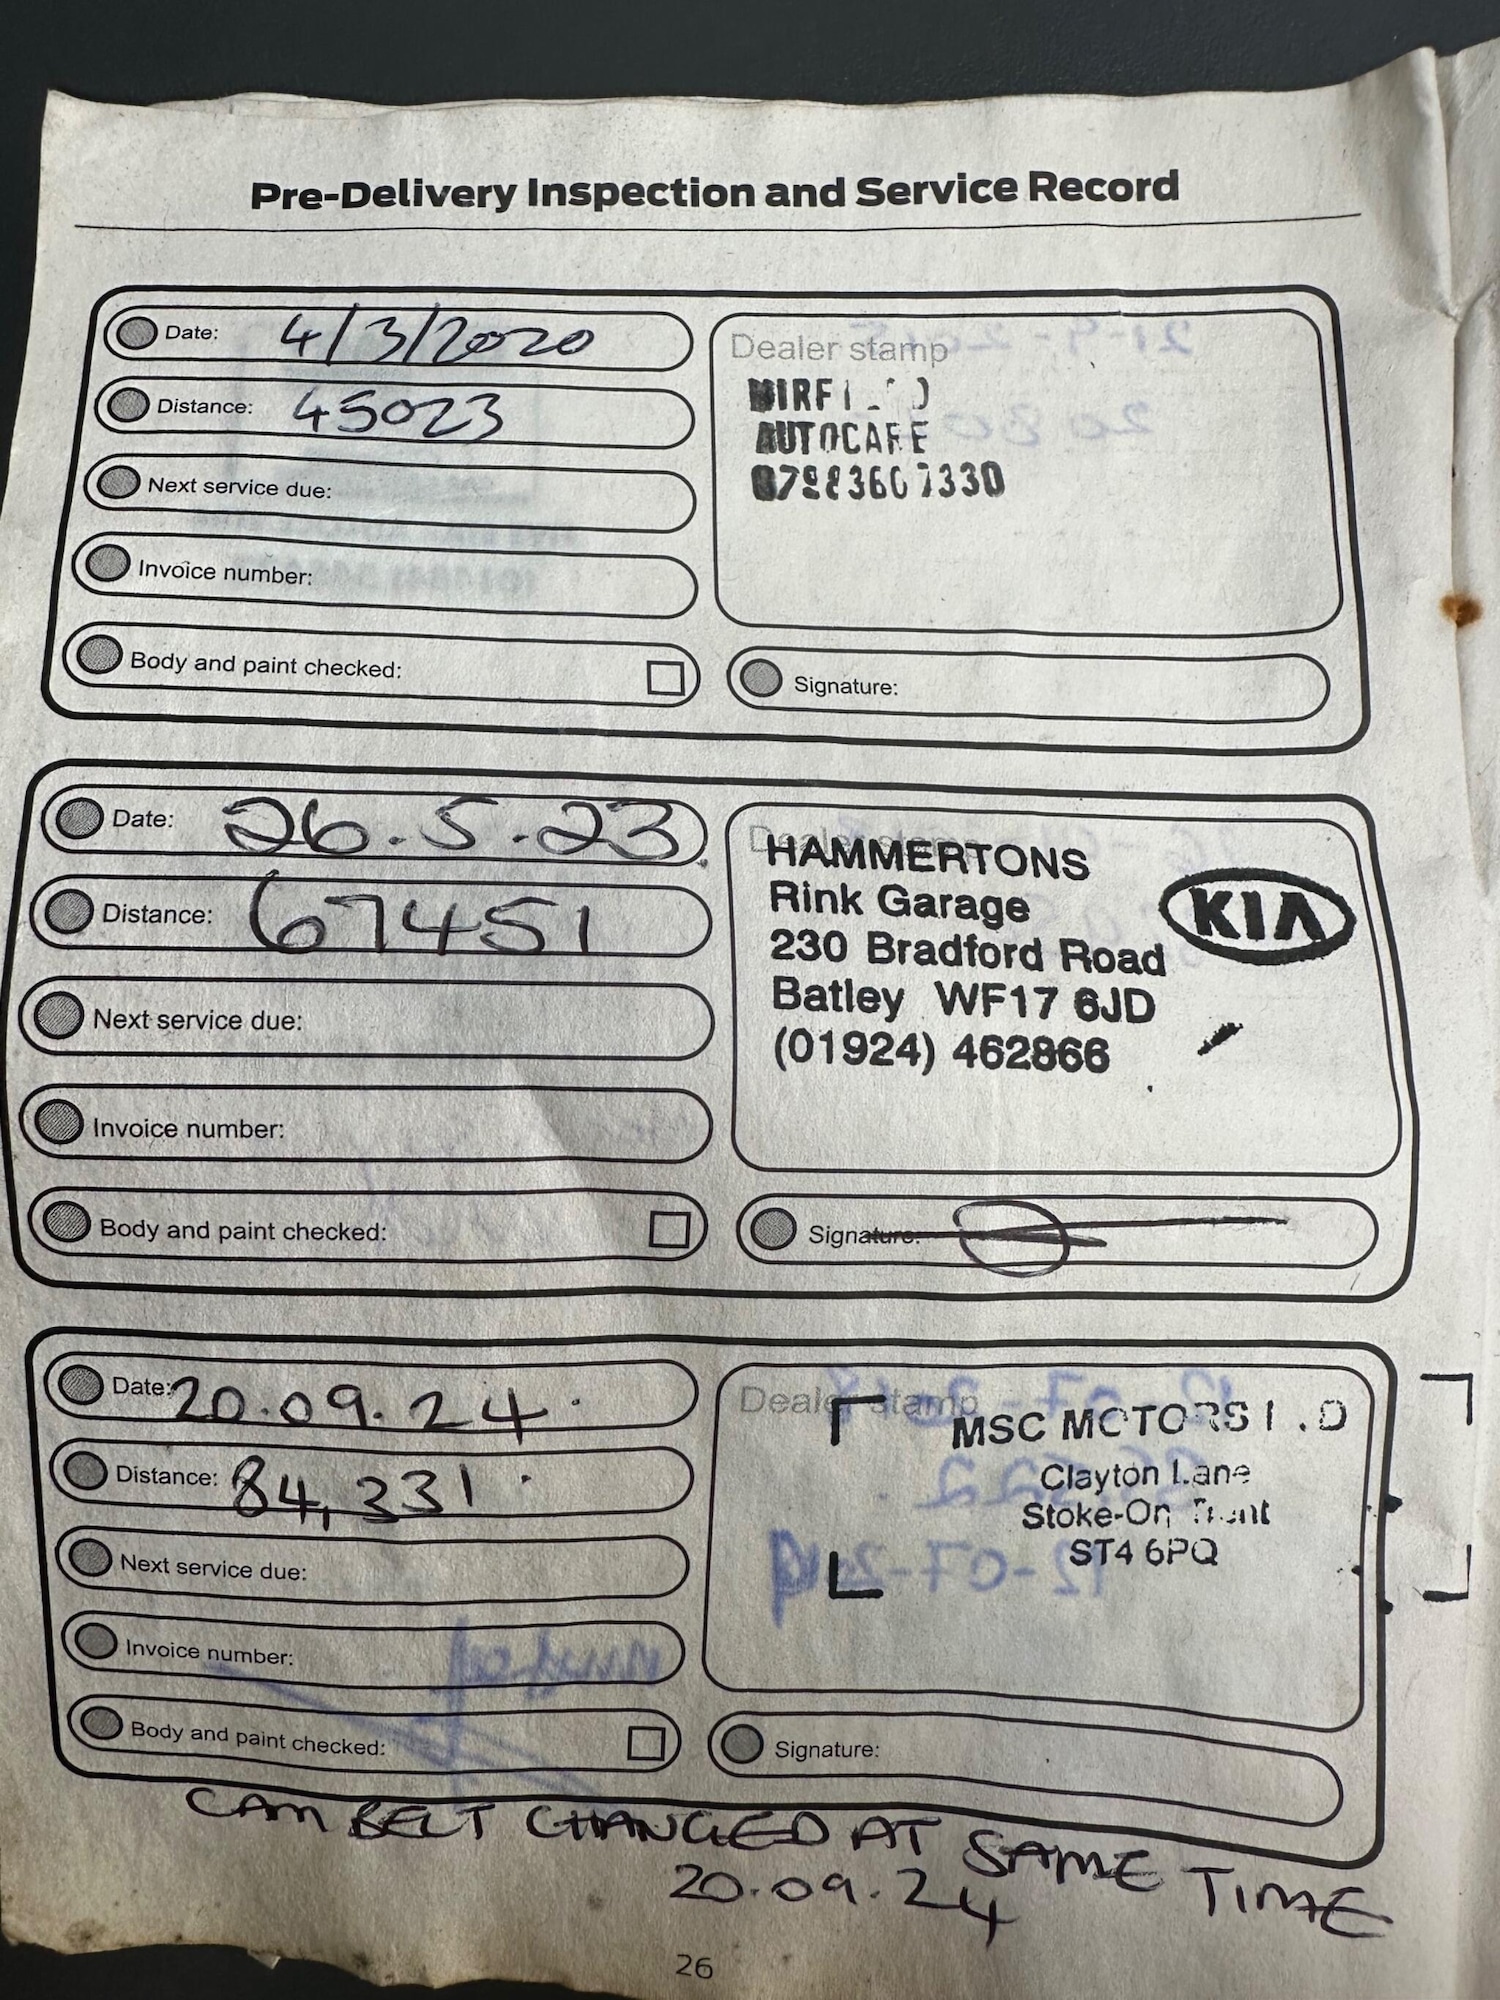 Pre-Delivery Inspection and Service Record
Date: 4/3/2020
Distance: 45023
Next service due:
Invoice number:
Body and paint checked:
Dealer stamp
AUTOCARE
Signature:
Date: 26.5.23
Distance: 67451
Next service due:
Invoice number:
Body and paint checked:
Dealer stamp
HAMMERTONS
Rink Garage
230 Bradford Road
Batley WF17 6JD
(01924) 462866
KIA
Signature:
Date: 20.09.24.
Distance: 84,331.
Next service due:
Invoice number:
Body and paint checked:
Dealer stamp
MSC MOTORS
Clayton Lane
Stoke-On Trent
ST4 6PQ
Signature:
CAM BELT CHANGED AT SAME TIME
20.09.24
26